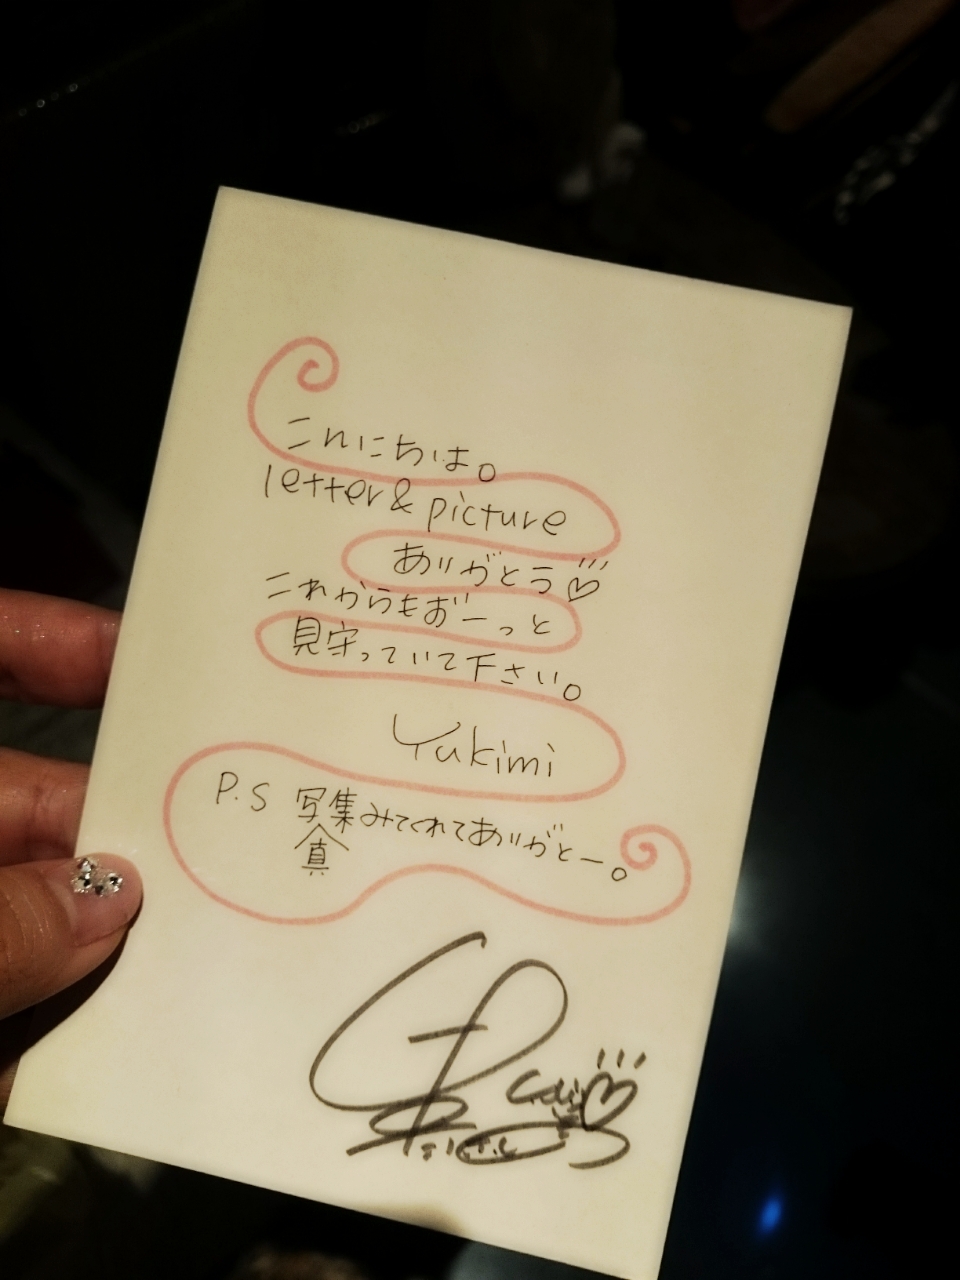 こんにちは。
letter & picture
ありがとう♡
これからもずーっと
見守っていて下さい。
Yukimi
P.S 写真集みてくれてありがとー。